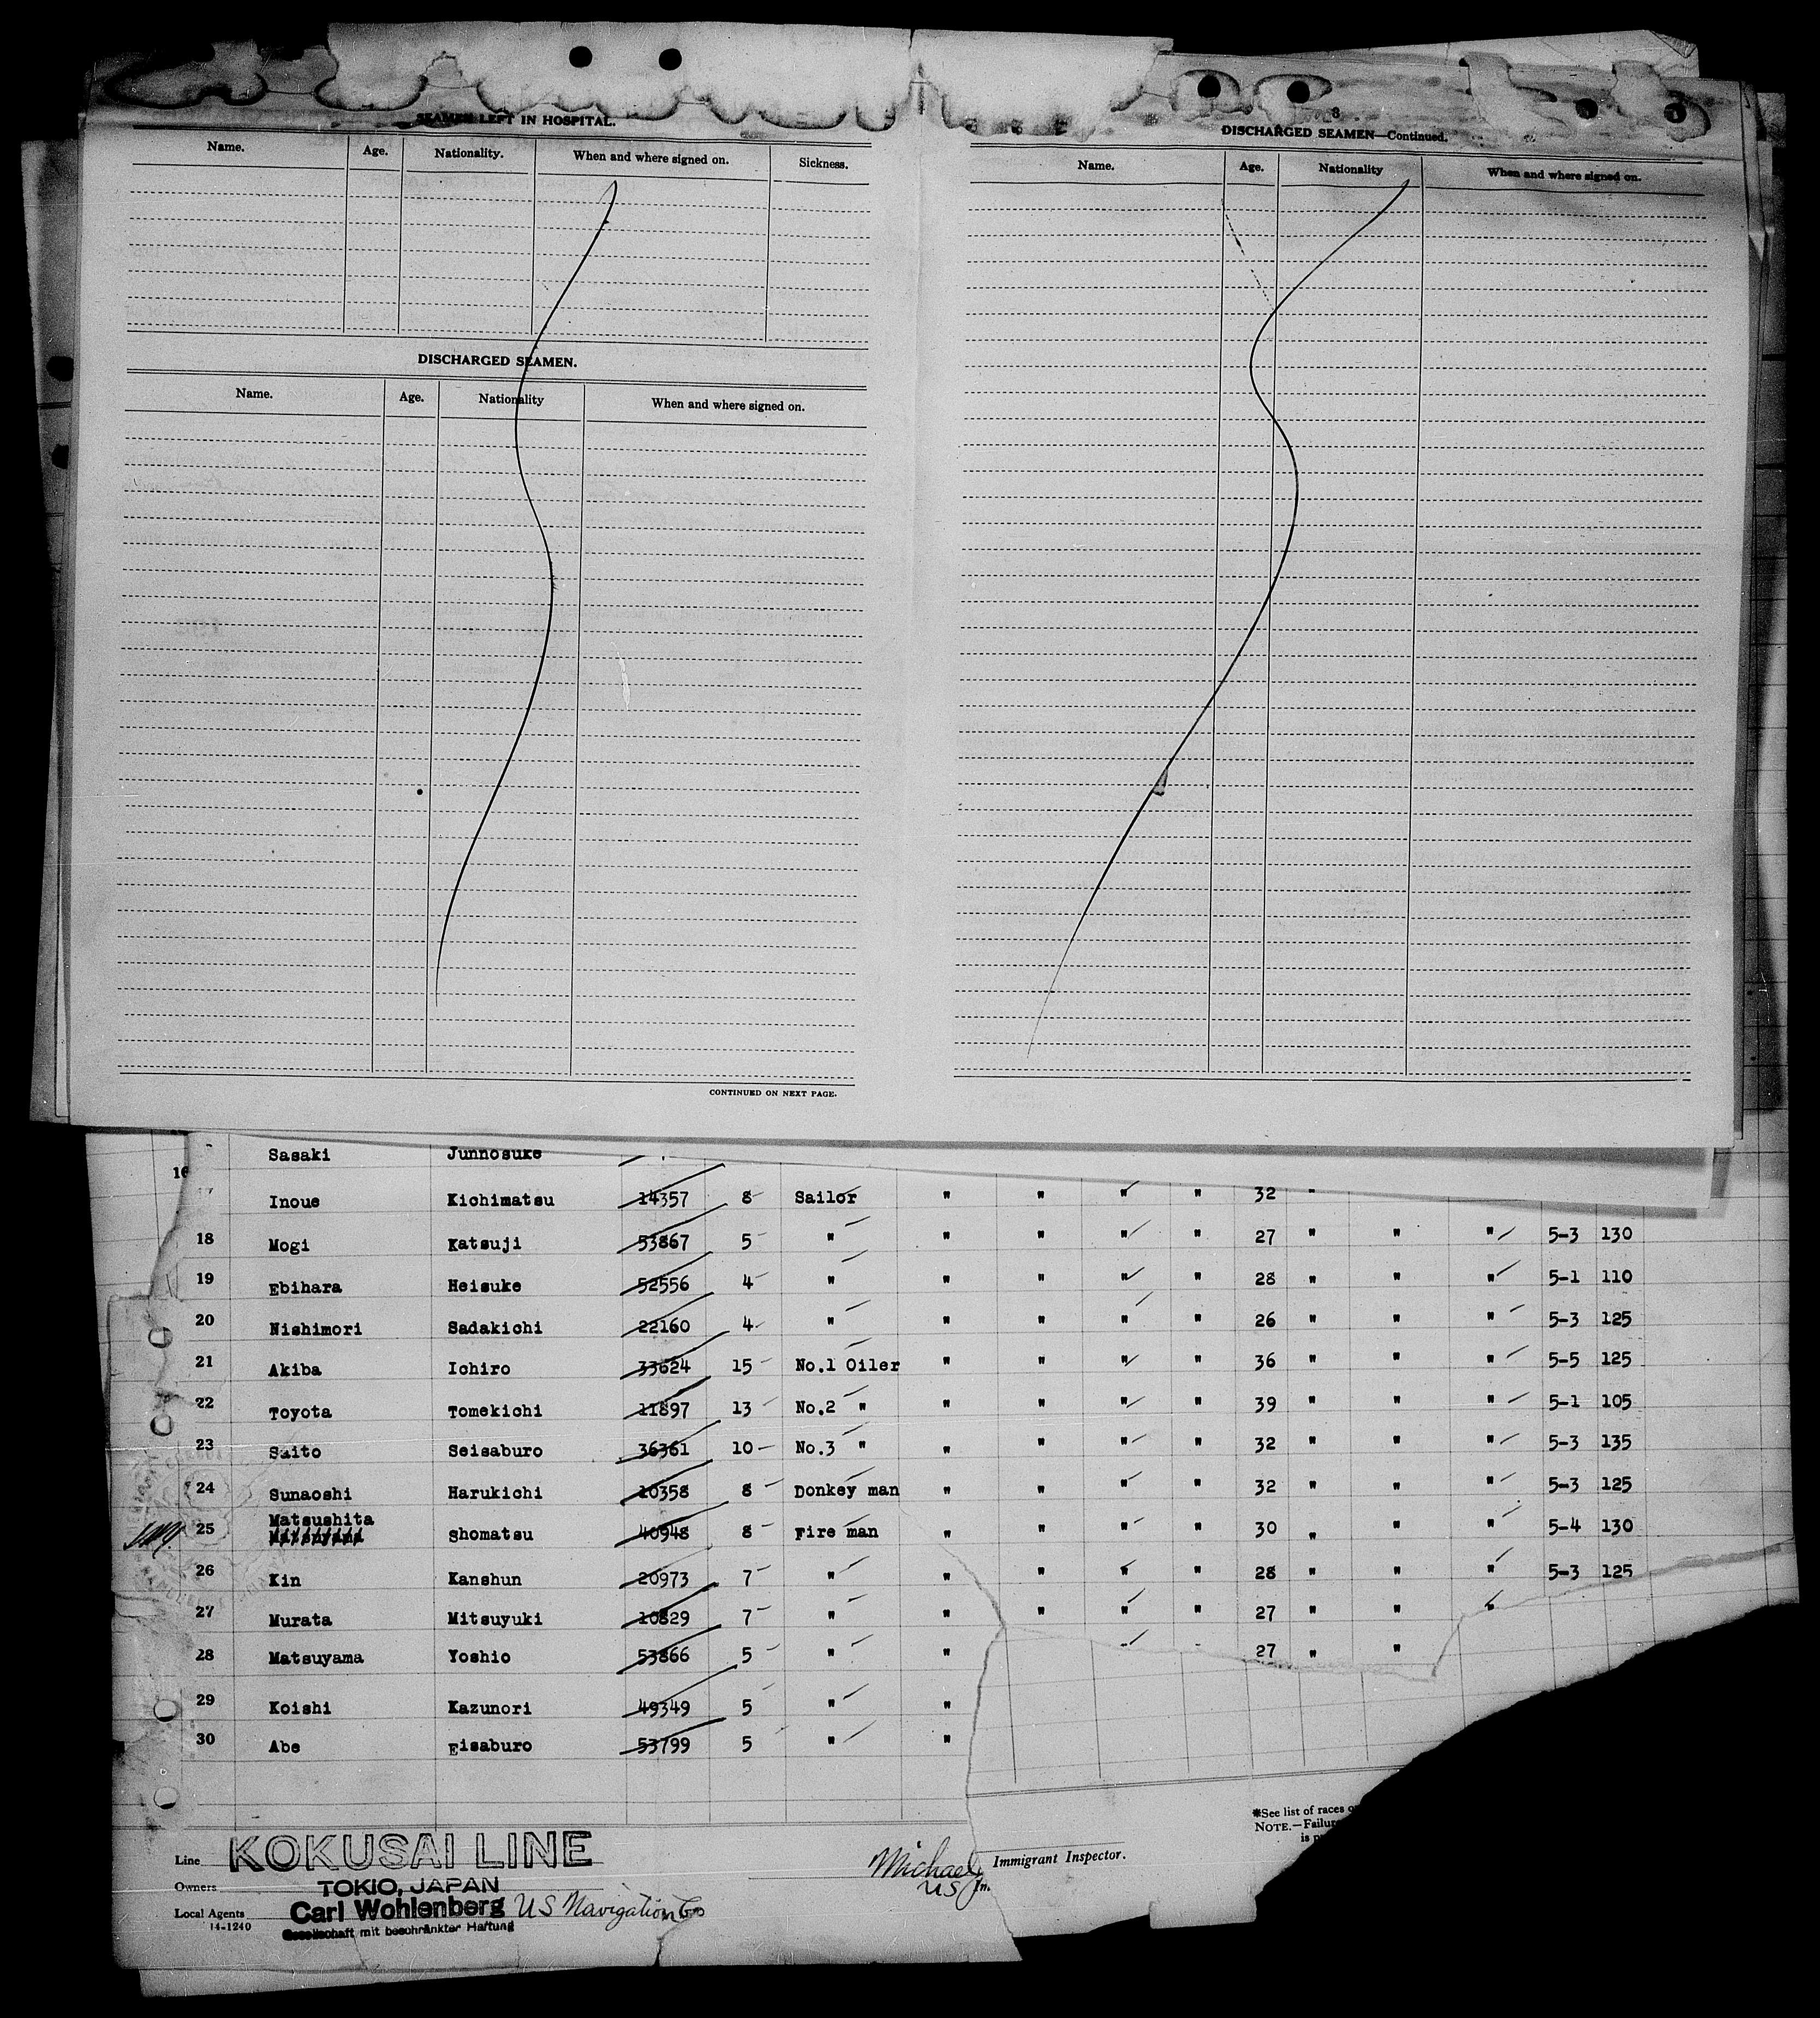 SEAMEN LEFT IN HOSPITAL.
Name. Age. Nationality. When and where signed on. Sickness.
DISCHARGED SEAMEN.
Name. Age. Nationality When and where signed on.
CONTINUED ON NEXT PAGE.
8
DISCHARGED SEAMEN—Continued.
Name. Age. Nationality When and where signed on.
16 Sasaki Junnosuke
Inoue Kichimatsu 14357 8 Sailor " " " " 32 "
18 Mogi Katsuji 53867 5 " " " " " 27 " " " 5-3 130
19 Ebihara Heisuke 52556 4 " " " " " 28 " " " 5-1 110
20 Nishimori Sadakichi 22160 4 " " " " " 26 " " " 5-3 125
21 Akiba Ichiro 33624 15 No.1 Oiler " " " " 36 " " " 5-5 125
22 Toyota Tomekichi 11897 13 No.2 " " " " " 39 " " " 5-1 105
23 Saito Seisaburo 36361 10 No.3 " " " " " 32 " " " 5-3 135
24 Sunaoshi Harukichi 10358 8 Donkey man " " " " 32 " " " 5-3 125
Matsushita
25 Shomatsu 40948 8 Fire man " " " " 30 " " " 5-4 130
26 Kin Kanshun 20973 7 " " " " " 28 " " " 5-3 125
27 Murata Mitsuyuki 10829 7 " " " " " 27 " " "
28 Matsuyama Yoshio 53866 5 " " " 27 " "
29 Koishi Kazunori 49349 5 " "
30 Abe Eisaburo 53799 5 " "
*See list of races
NOTE.—Failure
is
Line KOKUSAI LINE
Michael
Immigrant Inspector.
US In.
Owners TOKIO, JAPAN
Local Agents Carl Wohlenberg US Navigation Co
14-1240 Gesellschaft mit beschränkter Haftung